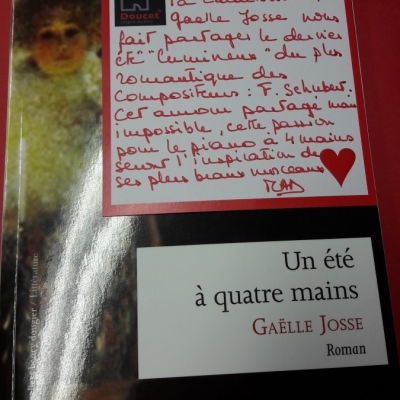 H
Douces
Gaelle Josse nous
fait partager le dernier
été "lumineux" du plus
romantique des
compositeurs : F. Schubert.
Cet amour partagé mais
impossible, cette passion
pour le piano à 4 mains
seront l'inspiration de
ses plus beaux morceaux
Un été
à quatre mains
GAËLLE JOSSE
Roman